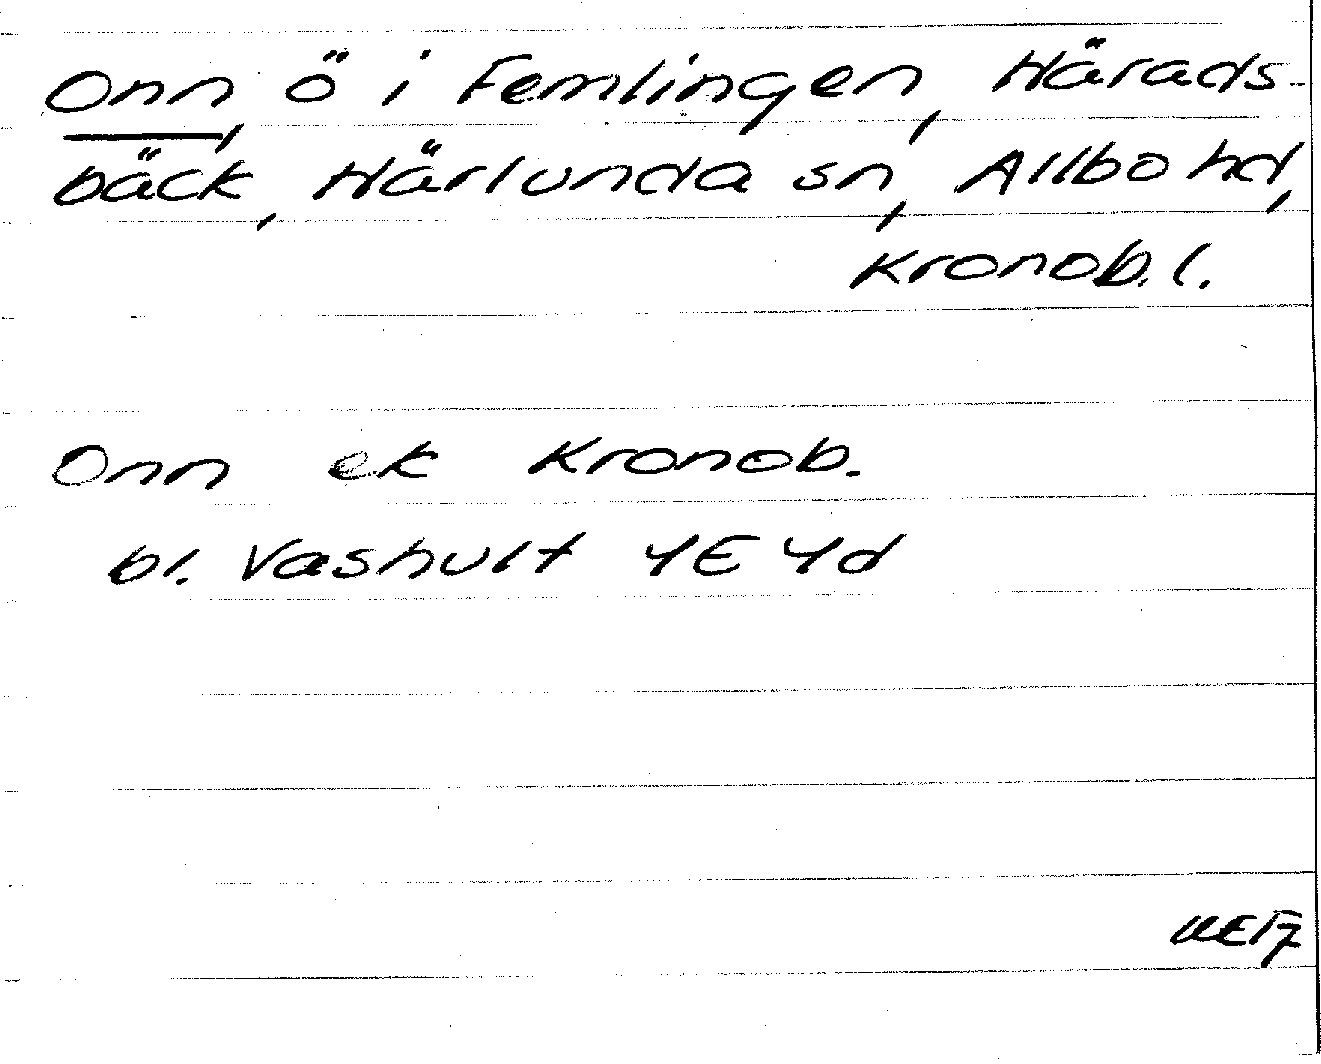 Onn, ö i Femlingen, Härads-
bäck, Härlunda sn, Allbo hd,
Kronob. l.
Onn ek Kronob.
bl. Vashult 4E 4d